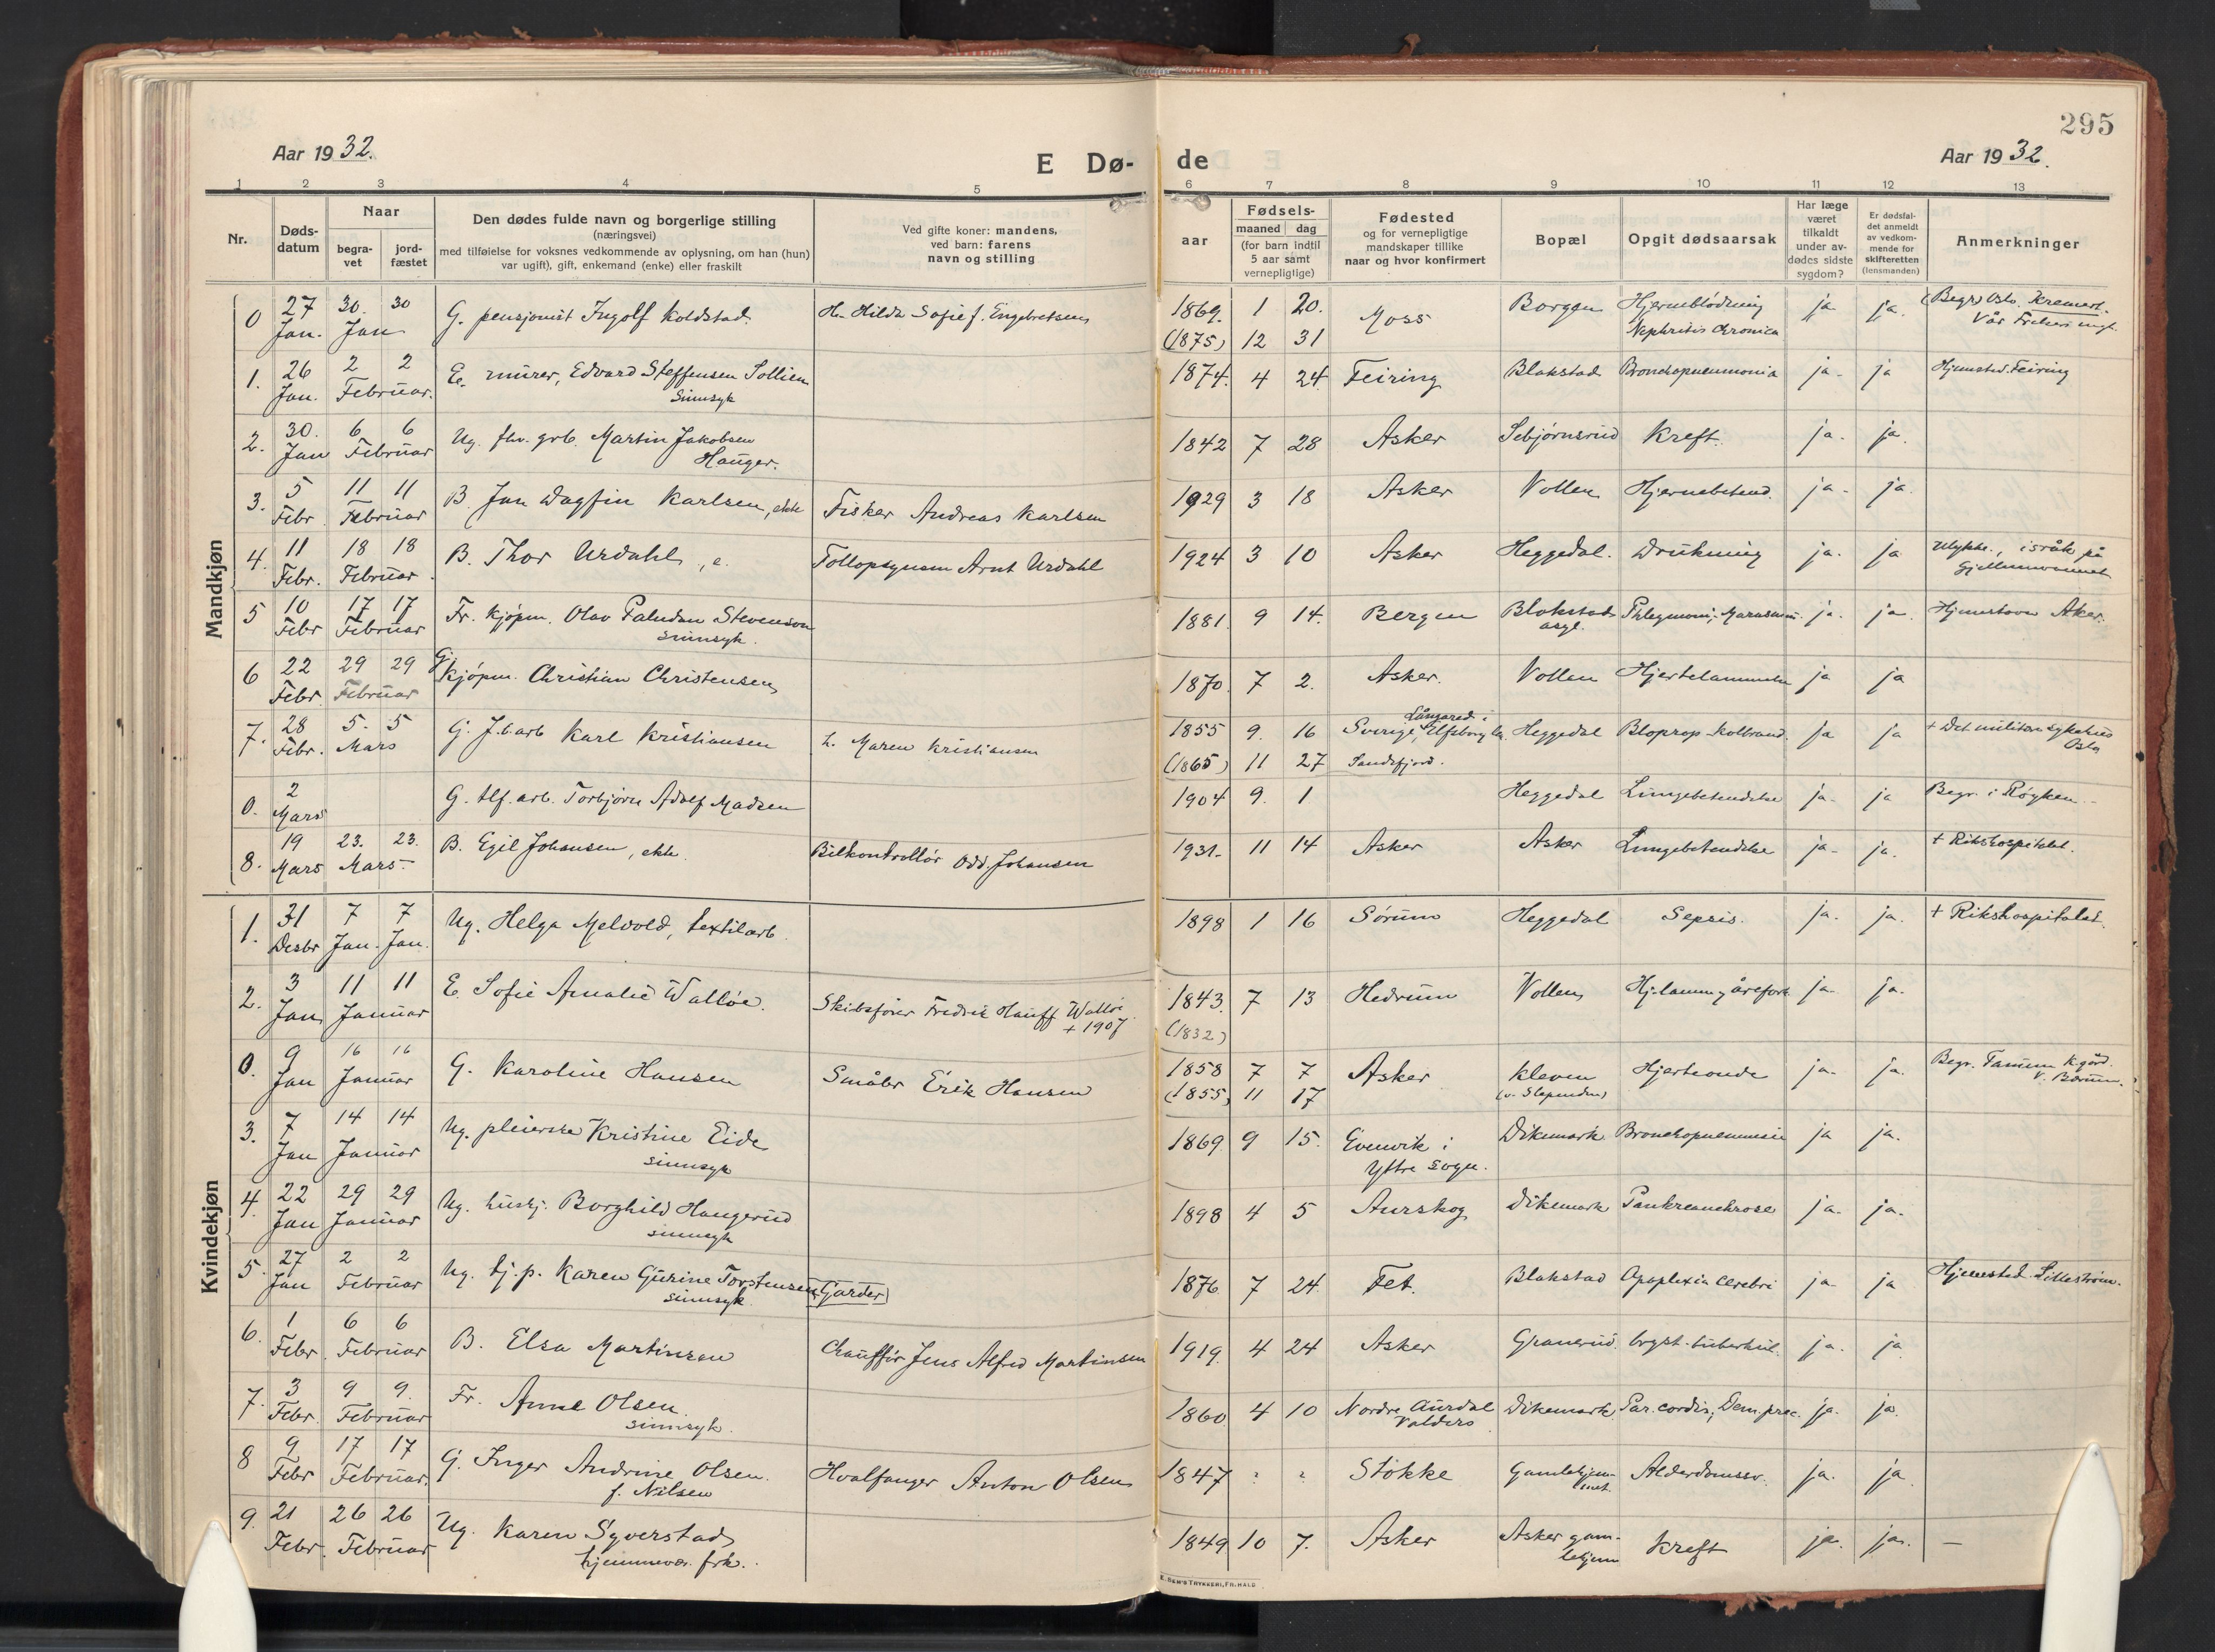 295
Aar 1932.
E Dø-
de
Aar 1932.
1 2 3 4 5 6 7 8 9 10 11 12 13
Nr.
Døds-
datum
Naar
begra-
vet
jord-
fæstet
Den dødes fulde navn og borgerlige stilling
(næringsvei)
med tilføielse for voksnes vedkommende av oplysning, om han (hun)
var ugift), gift, enkemand (enke) eller fraskilt
Ved gifte koner: mandens,
ved barn: farens
navn og stilling
aar
Fødsels-
maaned dag
(for barn indtil
5 aar samt
vernepligtige)
Fødested
og for vernepligtige
mandskaper tillike
naar og hvor konfirmert
Bopæl
Opgit dødsaarsak
Har læge
været
tilkaldt
under av-
dødes sidste
sygdom?
Er dødsfal-
det anmeldt
av vedkom-
mende for
skifteretten
(lensmanden)
Anmerkninger
Mandkjøn
0 27 30. 30 G. pensjonist Ingolf Koldstad. H. Hilda Sofie f. Engebretsen 1869. 1 20. Moss Borgen Hjerneblødning ja ja. (Begr) Oslo. Kremert.
Jan. Jan (1875) 12 31 Nephritis chronica Vår Frelsers
1. 26 2 2 E. murer, Edvard Steffensen Sollien 1874. 4 24. Feiring Blakstad Bronchopneumonia ja- ja Hjemsted. Feiring
Jan. Februar. Sinnsyk
2. 30. 6 6 Ug. fhv. grb. Martin Jakobsen 1842 7 28 Asker Sebjørnsrud Kreft. ja. ja.
Jan Februar Hauger.
3. 5 11 11 B Jan Dagfin Karlsen, ekte Fisker Andreas Karlsen 1929 3 18 Asker Vollen Hjernebetend. ja- ja.
Febr. Februar
4. 11 18 18 B. Thor Urdahl, e. Tollopsynsm Arnt Urdahl 1924 3 10 Asker Heggedal. Drukning ja. ja Ulykke., isråk på
Febr. Februar. Gjellumvannet
5 10 17 17 Fr. kjøpm. Olav Paludan Stevenson 1881. 9 14. Bergen Blakstad Phlegmoni; Marasmus. ja. ja. Hjemstavn Aker.
Febr Februar sinnsyk. asyl.
6 22 29 29 G. Kjøpm. Christian Christensen 1870. 7 2. Asker. Vollen Hjertelammelse ja ja
Febr. Februar
7. 28 5. 5 G. J.b.arb Karl Kristiansen h. Maren Kristiansen 1855 9. 16 Sverige, Långared i Elfsborg len. Heggedal Bloprop. Kolbrand. ja ja + Det militære sykehus
Febr. Mars (1865) 11 27 Sandefjord. Oslo
0. 2 G. tlf. arb. Torbjørn Adolf Madsen 1904 9. 1 Heggedal Lungebetendelse ja- ja Begr. i Røyken
Mars
8. 19 23. 23. B. Egil Johansen, ekte. Bilkontrollør Odd Johansen 1931. 11 14 Asker Asker Lungebetendelse ja- ja. + Rikshospitalet.
Mars Mars-
Kvindekjøn
1. 31 7 7 Ug. Helga Melvold, textilarb. 1898 1 16 Sørum Heggedal Sepsis. ja. ja. + Rikshospitalet.
Desbr Jan. Jan.
2. 3 11 11 E. Sofie Amalie Walløe. Skibsfører Fredrik Hauff Walløe 1843. 7 13 Hedrum Vollen Hj.lamm. årefork ja ja.
Jan Januar + 1907 (1832)
0. 9 16 16 G. Karoline Hansen Småbr Erik Hansen 1858 7 7 Asker Kleven Hjerteonde ja- ja. Begr. Tanum K.gård.
Jan Januar (1855) 11 17 (v. Slependen) V. Bærum.
3. 7 14 14 Ug. pleierske Kristine Eide 1869. 9 15. Evenvik i Dikemark Bronchopneumoni ja ja.
Jan Januar sinnsyk Yttre Sogn.
4. 22 29 29 Ug. hushj. Borghild Haugerud 1898 4 5 Aurskog Dikemark Pankreasnekrose ja. ja.
Jan Januar sinnsyk
5. 27 2 2 Ug. tj.p. Karen Gurine Torstensen Garder 1876. 7 24. Fet. Blakstad Apoplexia cerebri ja- ja Hjemsted. Lilleström.
Jan Februar sinnsyk.
6. 1 6 6 B. Elsa Martinsen Chauffør Jens Alfred Martinsen 1919. 4 24 Asker Granerud. bryst-tuberkul. ja. ja
Febr. Februar
7. 3 9 9. Fr. Anne Olsen. 1860. 4 10 Nordre Aurdal Dikemark Par. cordis, Dem. prec. ja. ja.
Febr. Februar sinnsyk. Valders
8 9 17 17 G. Inger Andrine Olsen. Hvalfanger Anton Olsen 1847 ? ? Stokke Gamlehjem- Alderdomssv. ja. ja
Febr Februar. f. Nilsen met.
9. 21 26 26 Ug. Karen Syverstad 1849 10 7. Asker Asker gam- Kreft ja. ja. —
Febr. Februar hjemmevær. frk. lehjem
E. SEM'S TRYKKERI, FR.HALD